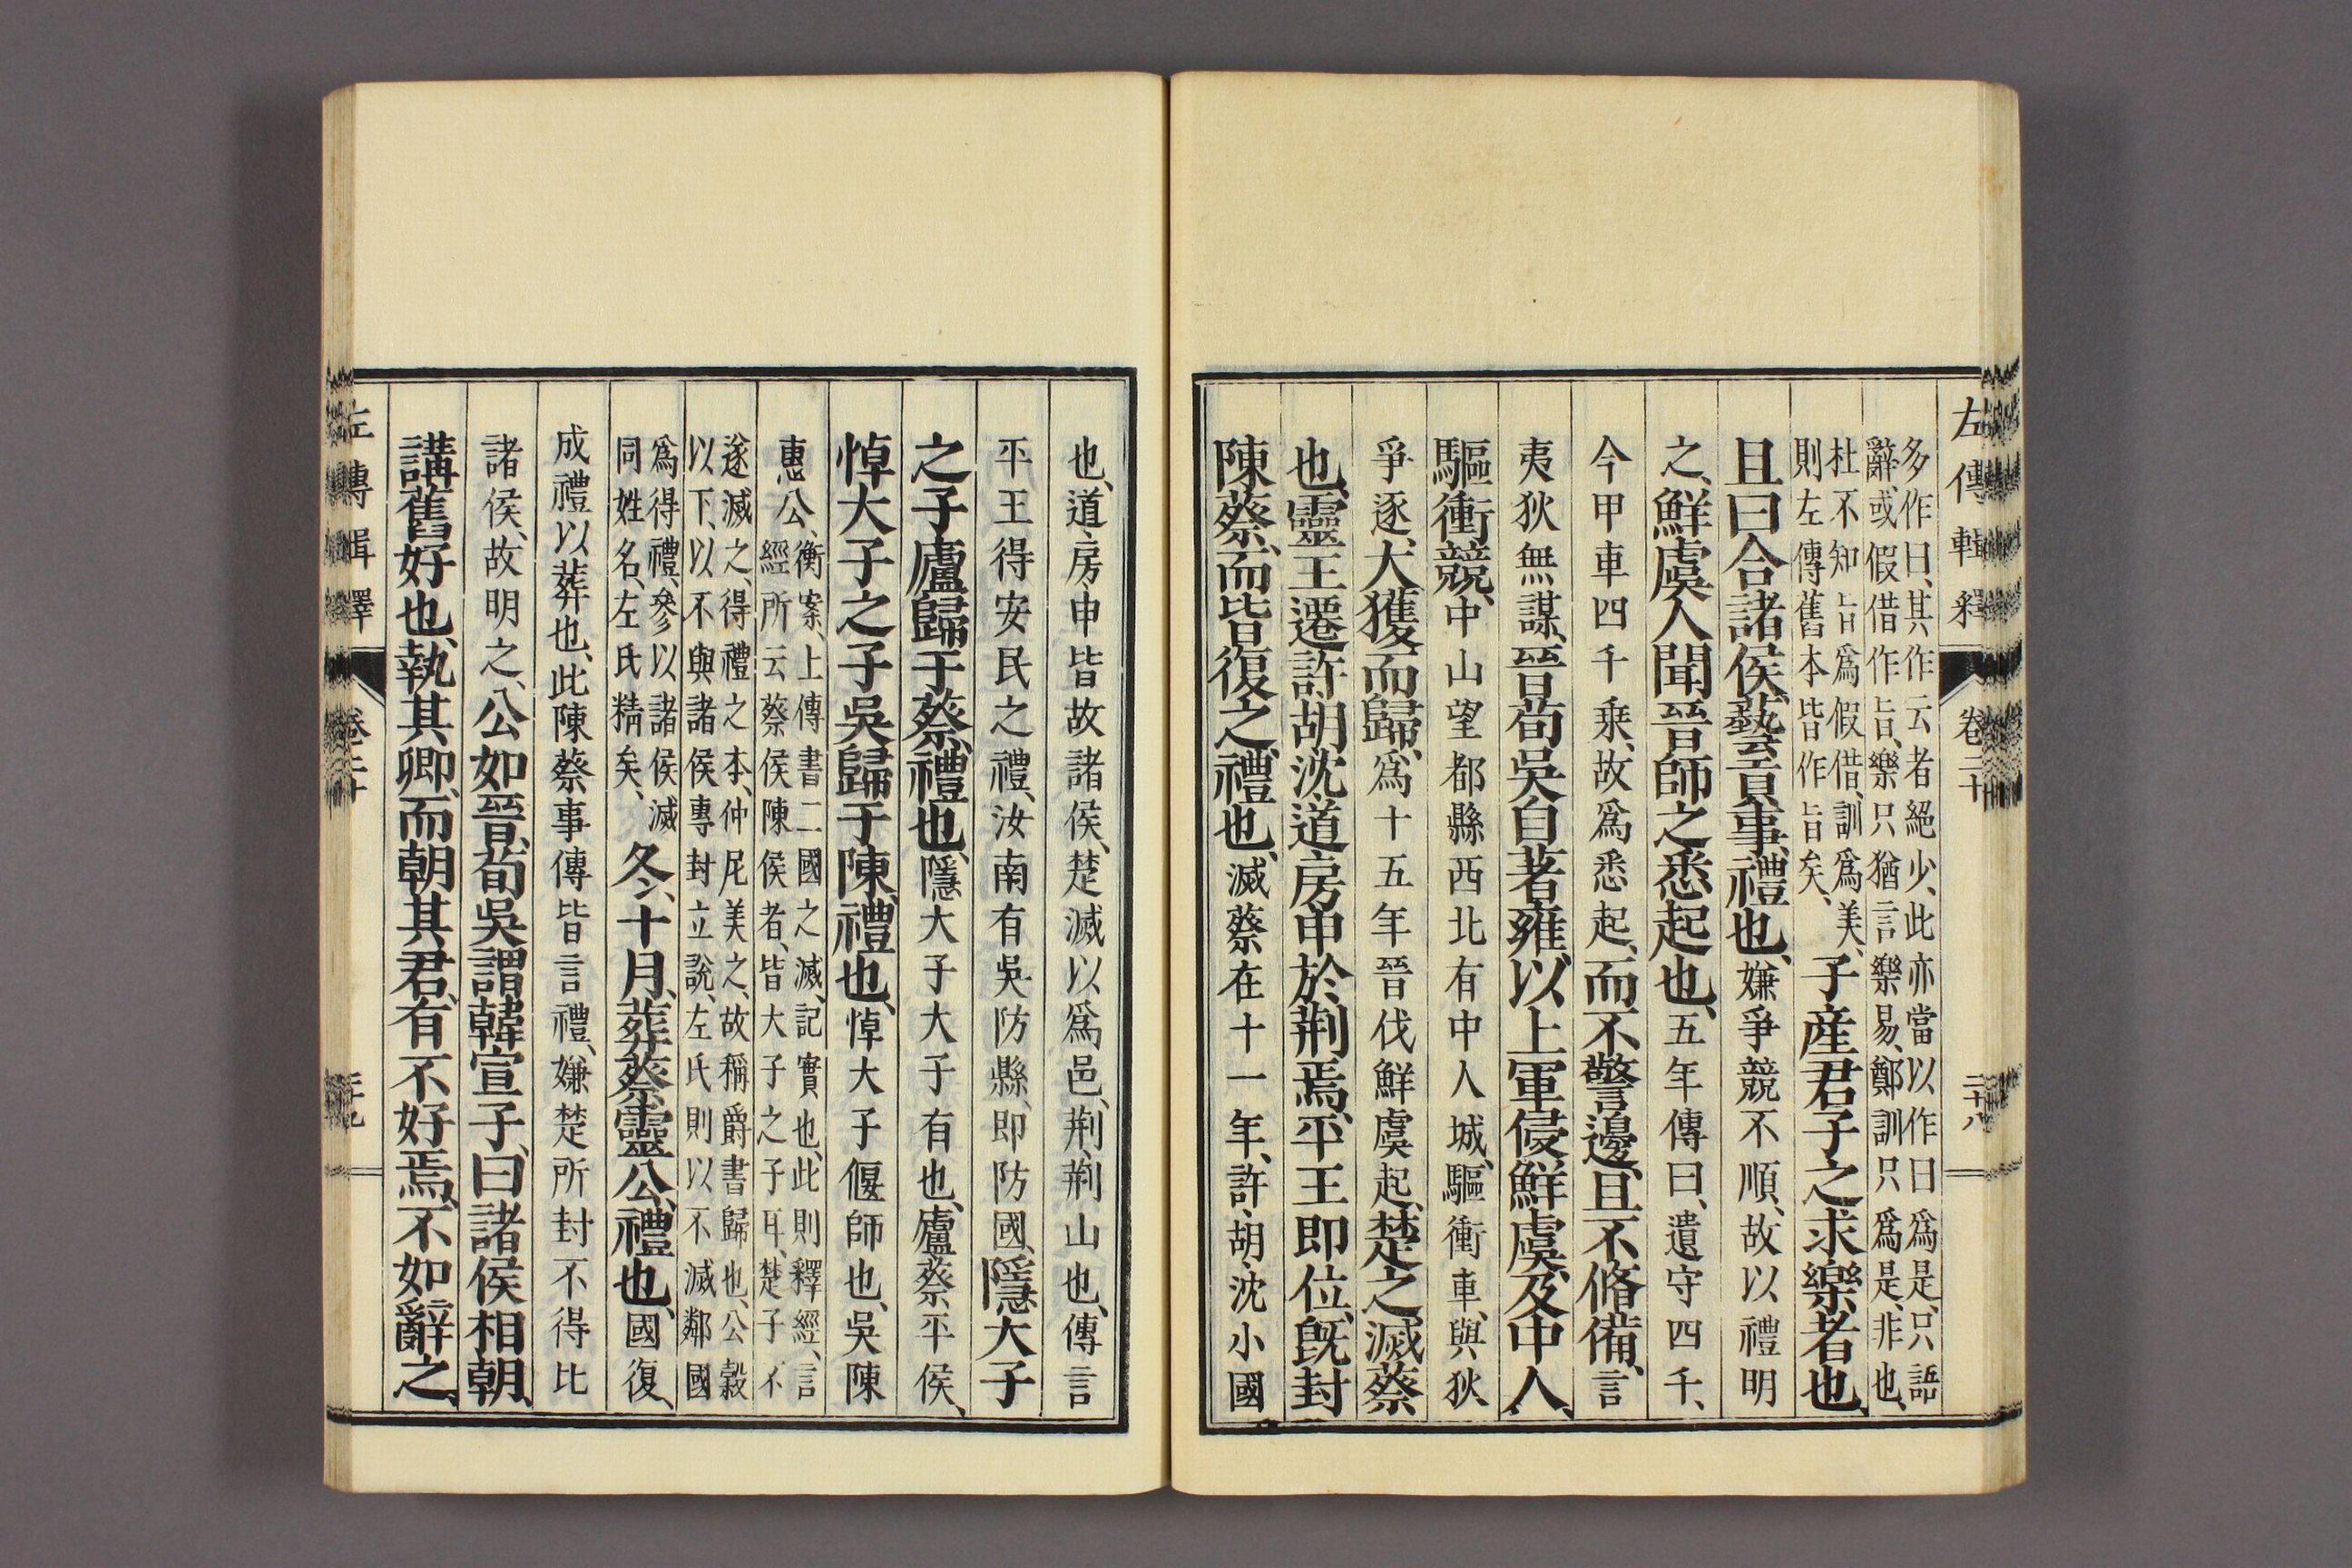 左傳輯釋 卷二十 二十八
多作曰、其作云者絕少、此亦當以作曰爲是、只語
辭、或假借作旨、樂只猶言樂易、鄭訓只爲是、非也、
杜不知旨爲假借、訓爲美、
則左傳舊本皆作旨矣、
子産君子之求樂者也、
且曰合諸侯、藝貢事、禮也、嫌爭競不順、故以禮明
之、鮮虞人聞晉師之悉起也、五年傳曰、遺守四千、
今甲車四千乗、故爲悉起、而不警邊、且不脩備、言
夷狄無謀、晉荀吳自著雍、以上軍侵鮮虞、及中人、
驅衝競、中山望都縣西北有中人城、驅衝車、與狄
爭逐、大獲而歸、爲十五年晉伐鮮虞起、楚之滅蔡
也、靈王遷許胡沈道房申於荆焉、平王即位、旣封
陳蔡、而皆復之、禮也、滅蔡在十一年、許、胡、沈小國
也、道、房、申皆故諸侯、楚滅以爲邑、荆、荆山也、傳言
平王得安民之禮、汝南有吳防縣、即防國、隱大子
之子廬歸于蔡、禮也、隱大子大子有也、廬蔡平侯、
悼大子之子吳歸于陳、禮也、悼大子偃師也、吳陳
惠公、
衡案、上傳書二國之滅、記實也、此則釋經、言
經所云蔡侯陳侯者、皆大子之子耳、楚子不
遂滅之、得禮之本、仲尼美之、故稱爵書歸也、公穀
以下、以不與諸侯專封立說、左氏則以不滅鄰國
爲得禮、參以諸侯滅
同姓名、左氏精矣、
冬、十月、葬蔡靈公、禮也、國復、
成禮以葬也、此陳蔡事傳皆言禮、嫌楚所封不得比
諸侯、故明之、公如晉、荀吳謂韓宣子、曰諸侯相朝、
講舊好也、執其卿、而朝其君、有不好焉、不如辭之、
左傳輯釋 卷二十